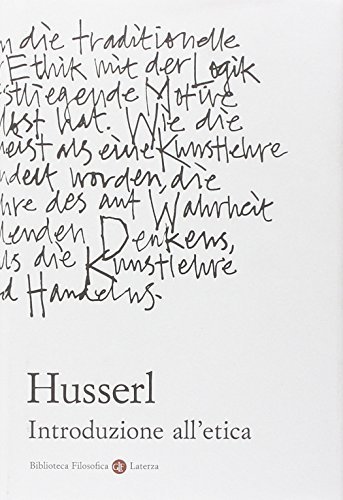 n die traditionelle
Ethik mit der Logik
stliegende Motive
lost hat. Wie die
meist als eine Kunstlehre
ndelt worden, die
hre des auf Wahrheit
lenden Denkens,
ls die Kunstlehre
d Handelns.
Husserl
Introduzione all'etica
Biblioteca Filosofica GLF Laterza